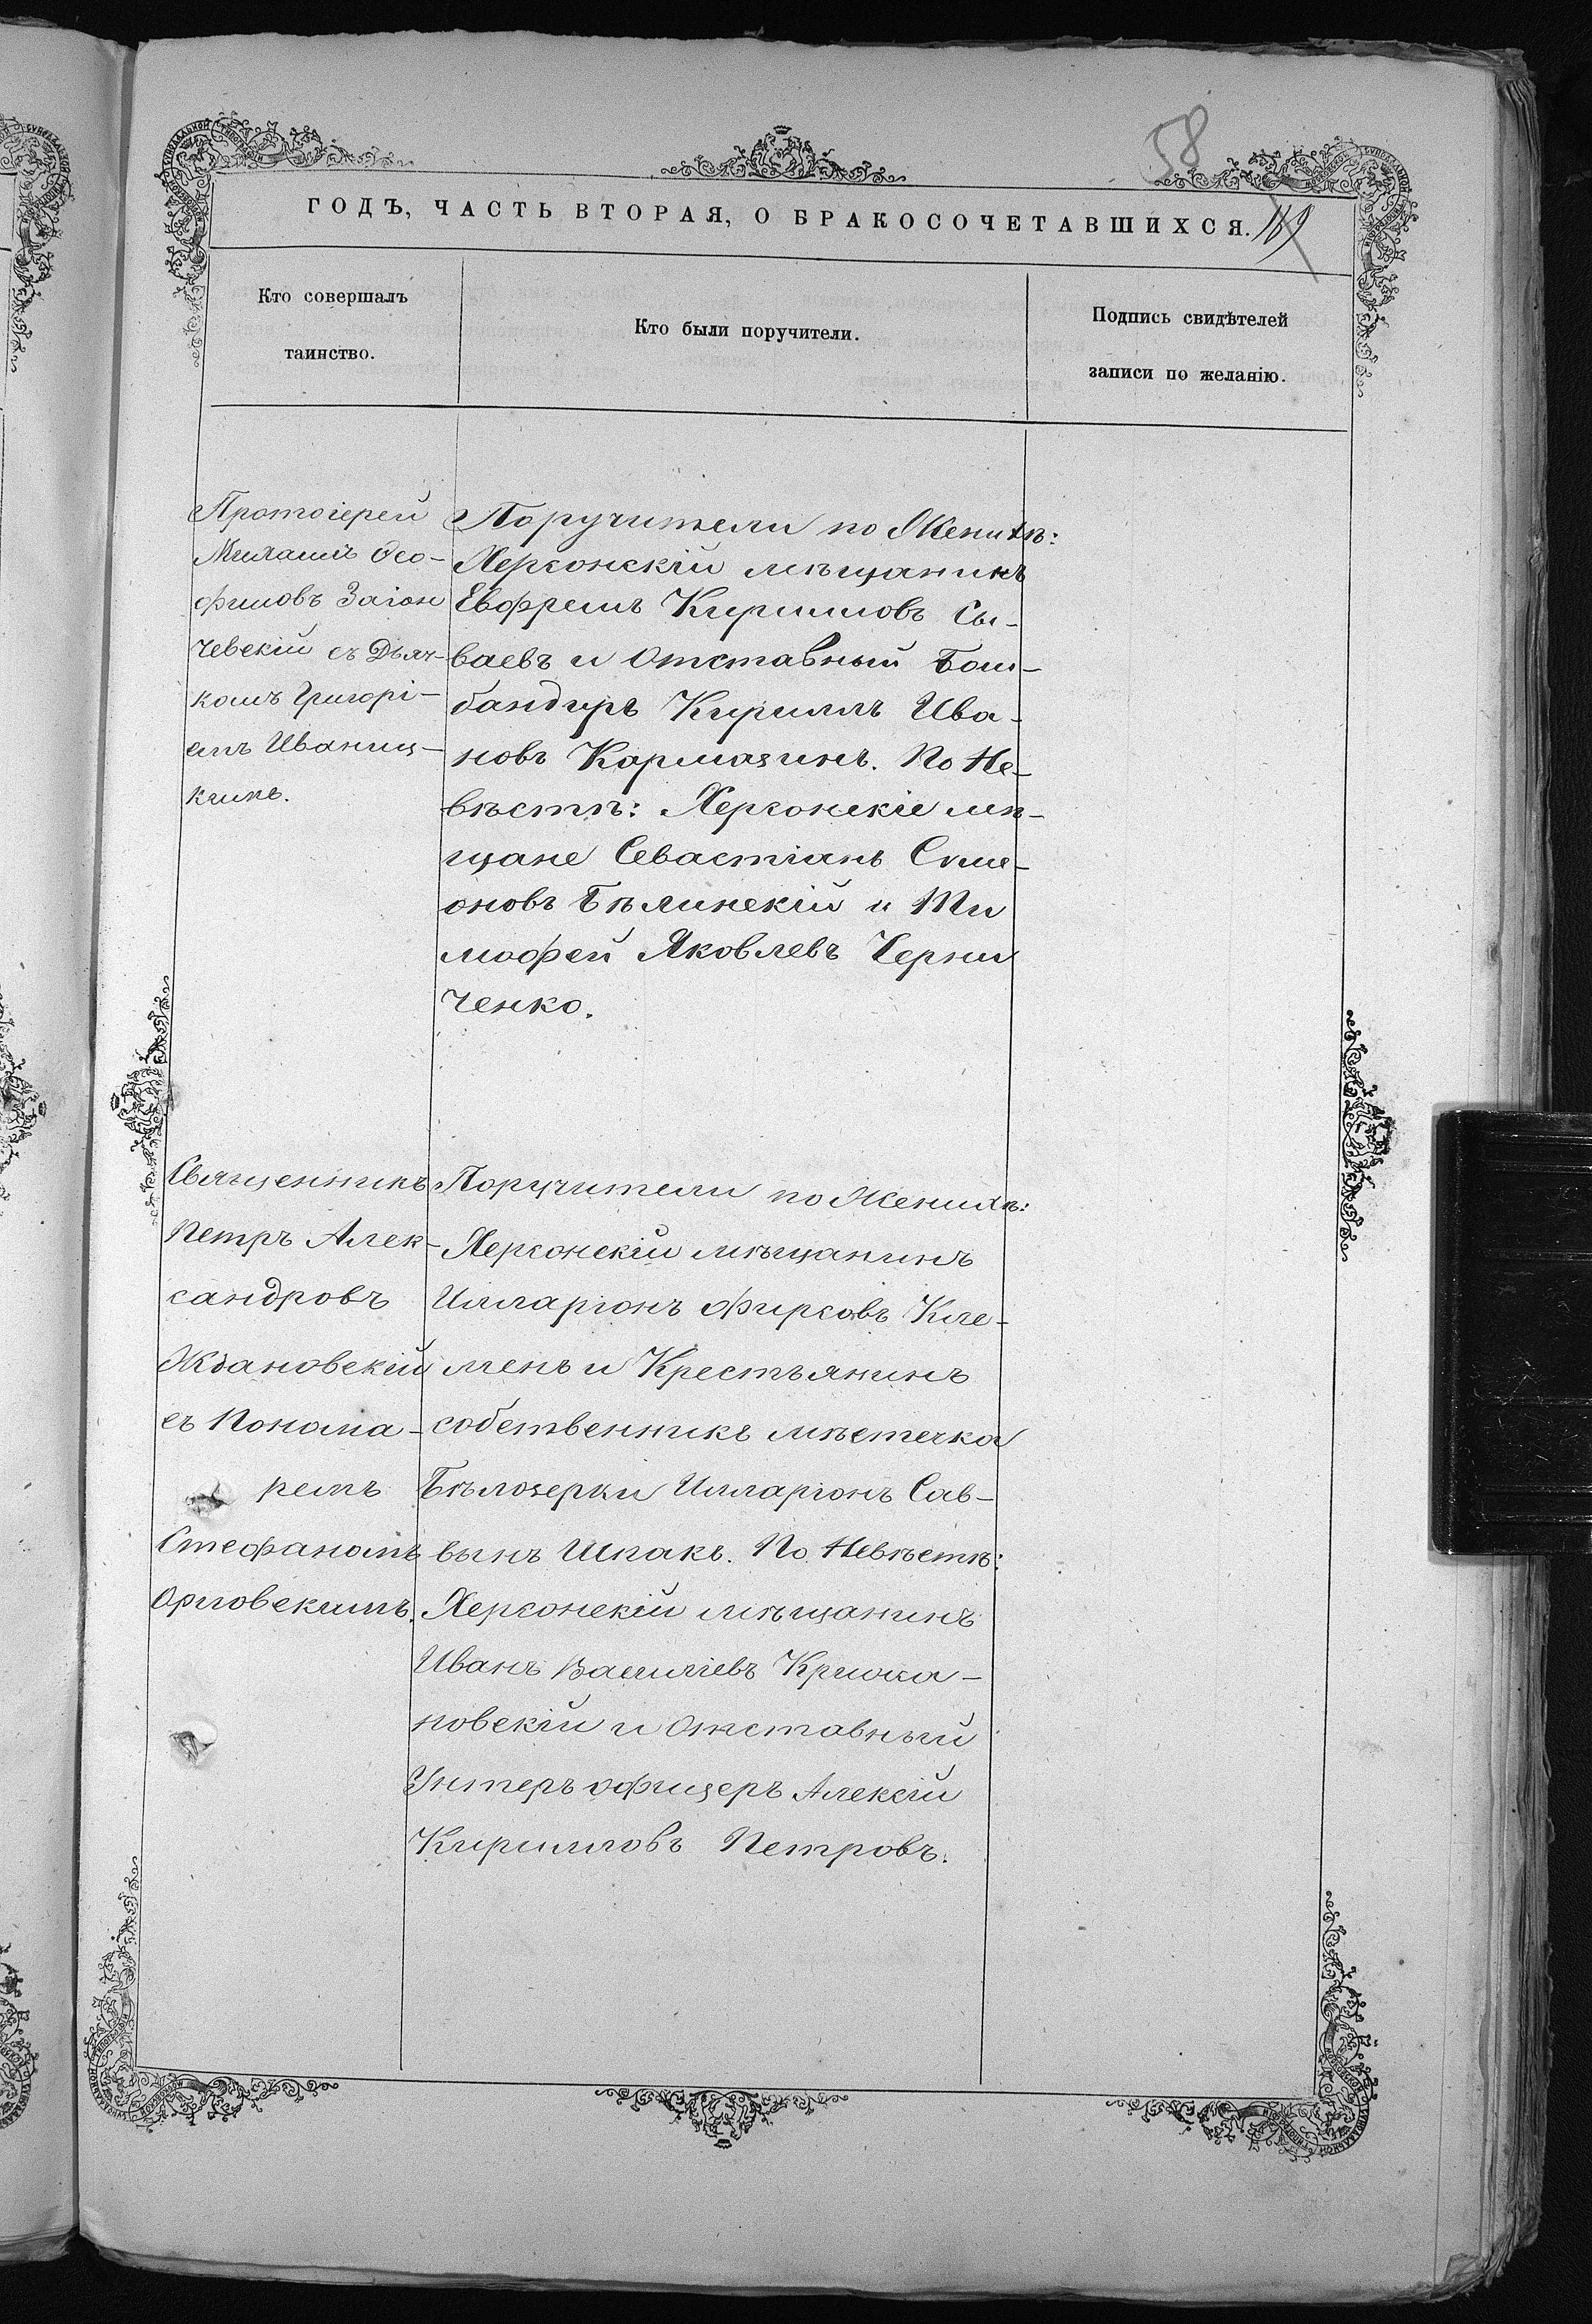 58
ГОДЪ, ЧАСТЬ ВТОРАЯ, О БРАКОСОЧЕТАВШИХСЯ. 169
Кто совершалъ
таинство.
Кто были поручители.
Подпись свидѣтелей
записи по желанію.
Протоіерей
Михаилъ Ѳео-
филовъ Заіон
чевскій съ Дьяч-
комъ Григорі-
емъ Иваниц-
кимъ.
Поручители по Женихѣ:
Херсонскій мѣщанинъ
Евфремъ Кирилловъ Сы-
ваевъ и Отставный Бом-
бандиръ Кириллъ Ива-
новъ Кармазинъ. По Не-
вѣстѣ: Херсонскіе мѣ-
щане Севастіанъ Симе-
оновъ Бѣлинскій и Ти
мофей Яковлевъ Черни
ченко.
Священникъ
Петръ Алек-
сандровъ
Ждановскій
съ Понома-
ремъ
Стефаномъ
Орловскимъ.
Поручители по Женихѣ:
Херсонскій мѣщанинъ
Илларіонъ Фирсовъ Кле-
менъ и Крестьянинъ
собственникъ мѣстечка
Бѣлозерки Илларіонъ Сав-
винъ Шпакъ. По Невѣстѣ:
Херсонскій мѣщанинъ
Иванъ Василіевъ
новскій и Отставный
Унтеръ офицеръ Алексій
Кирилловъ Петровъ.